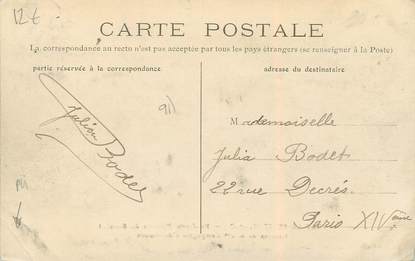 12€
CARTE POSTALE
La correspondance au recto n'est pas acceptée par tous les pays étrangers (se renseigner à la Poste)
partie réservée à la correspondance
adresse du destinataire
91)
Julien
Bodet
Mademoiselle
Julia Bodet
22 rue Decrés
Paris XIVème